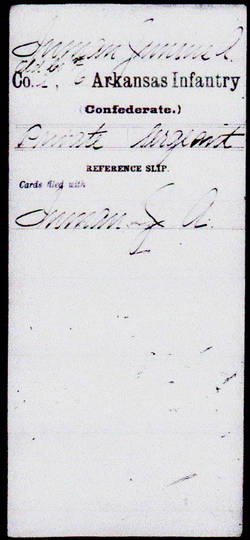 Inman
Co. 6 Arkansas Infantry
(Confederate.)
Private Sergeant
REFERENCE SLIP.
Cards filed with
Inman J A.